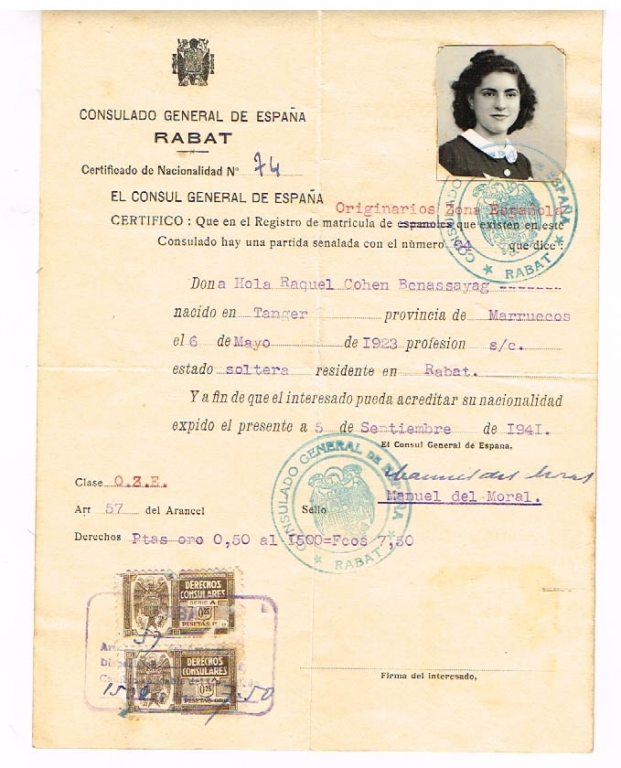 CONSULADO GENERAL DE ESPAÑA
RABAT
Certificado de Nacionalidad Nº 74
EL CONSUL GENERAL DE ESPAÑA
Originarios Zona Española
CERTIFICO : Que en el Registro de matrícula de españoles que existen en este
Consulado hay una partida senalada con el número 34 que dice :
CONSULADO GENERAL DE ESPAÑA
★ RABAT ★
Dona Hola Raquel Cohen Benassayag -------
nacido en Tanger provincia de Marruecos
el 6 de Mayo de 1923 profesion s/c.
estado soltera residente en Rabat.
Y a fin de que el interesado pueda acreditar su nacionalidad
expido el presente a 5 de Septiembre de 1941.
El Consul General de Espana.
Manuel del Moral
Manuel del Moral.
Clase O.Z.E.
Art 57 del Arancel Sello
CONSULADO GENERAL DE ESPAÑA
★ RABAT ★
Derechos Ptas oro 0,50 al 1500=Fcos 7,50
DERECHOS
CONSULARES
SERIE A
0'25
PESETAS
57
DERECHOS
CONSULARES
0'25
PESETAS
1500 7.50
Firma del interesado,